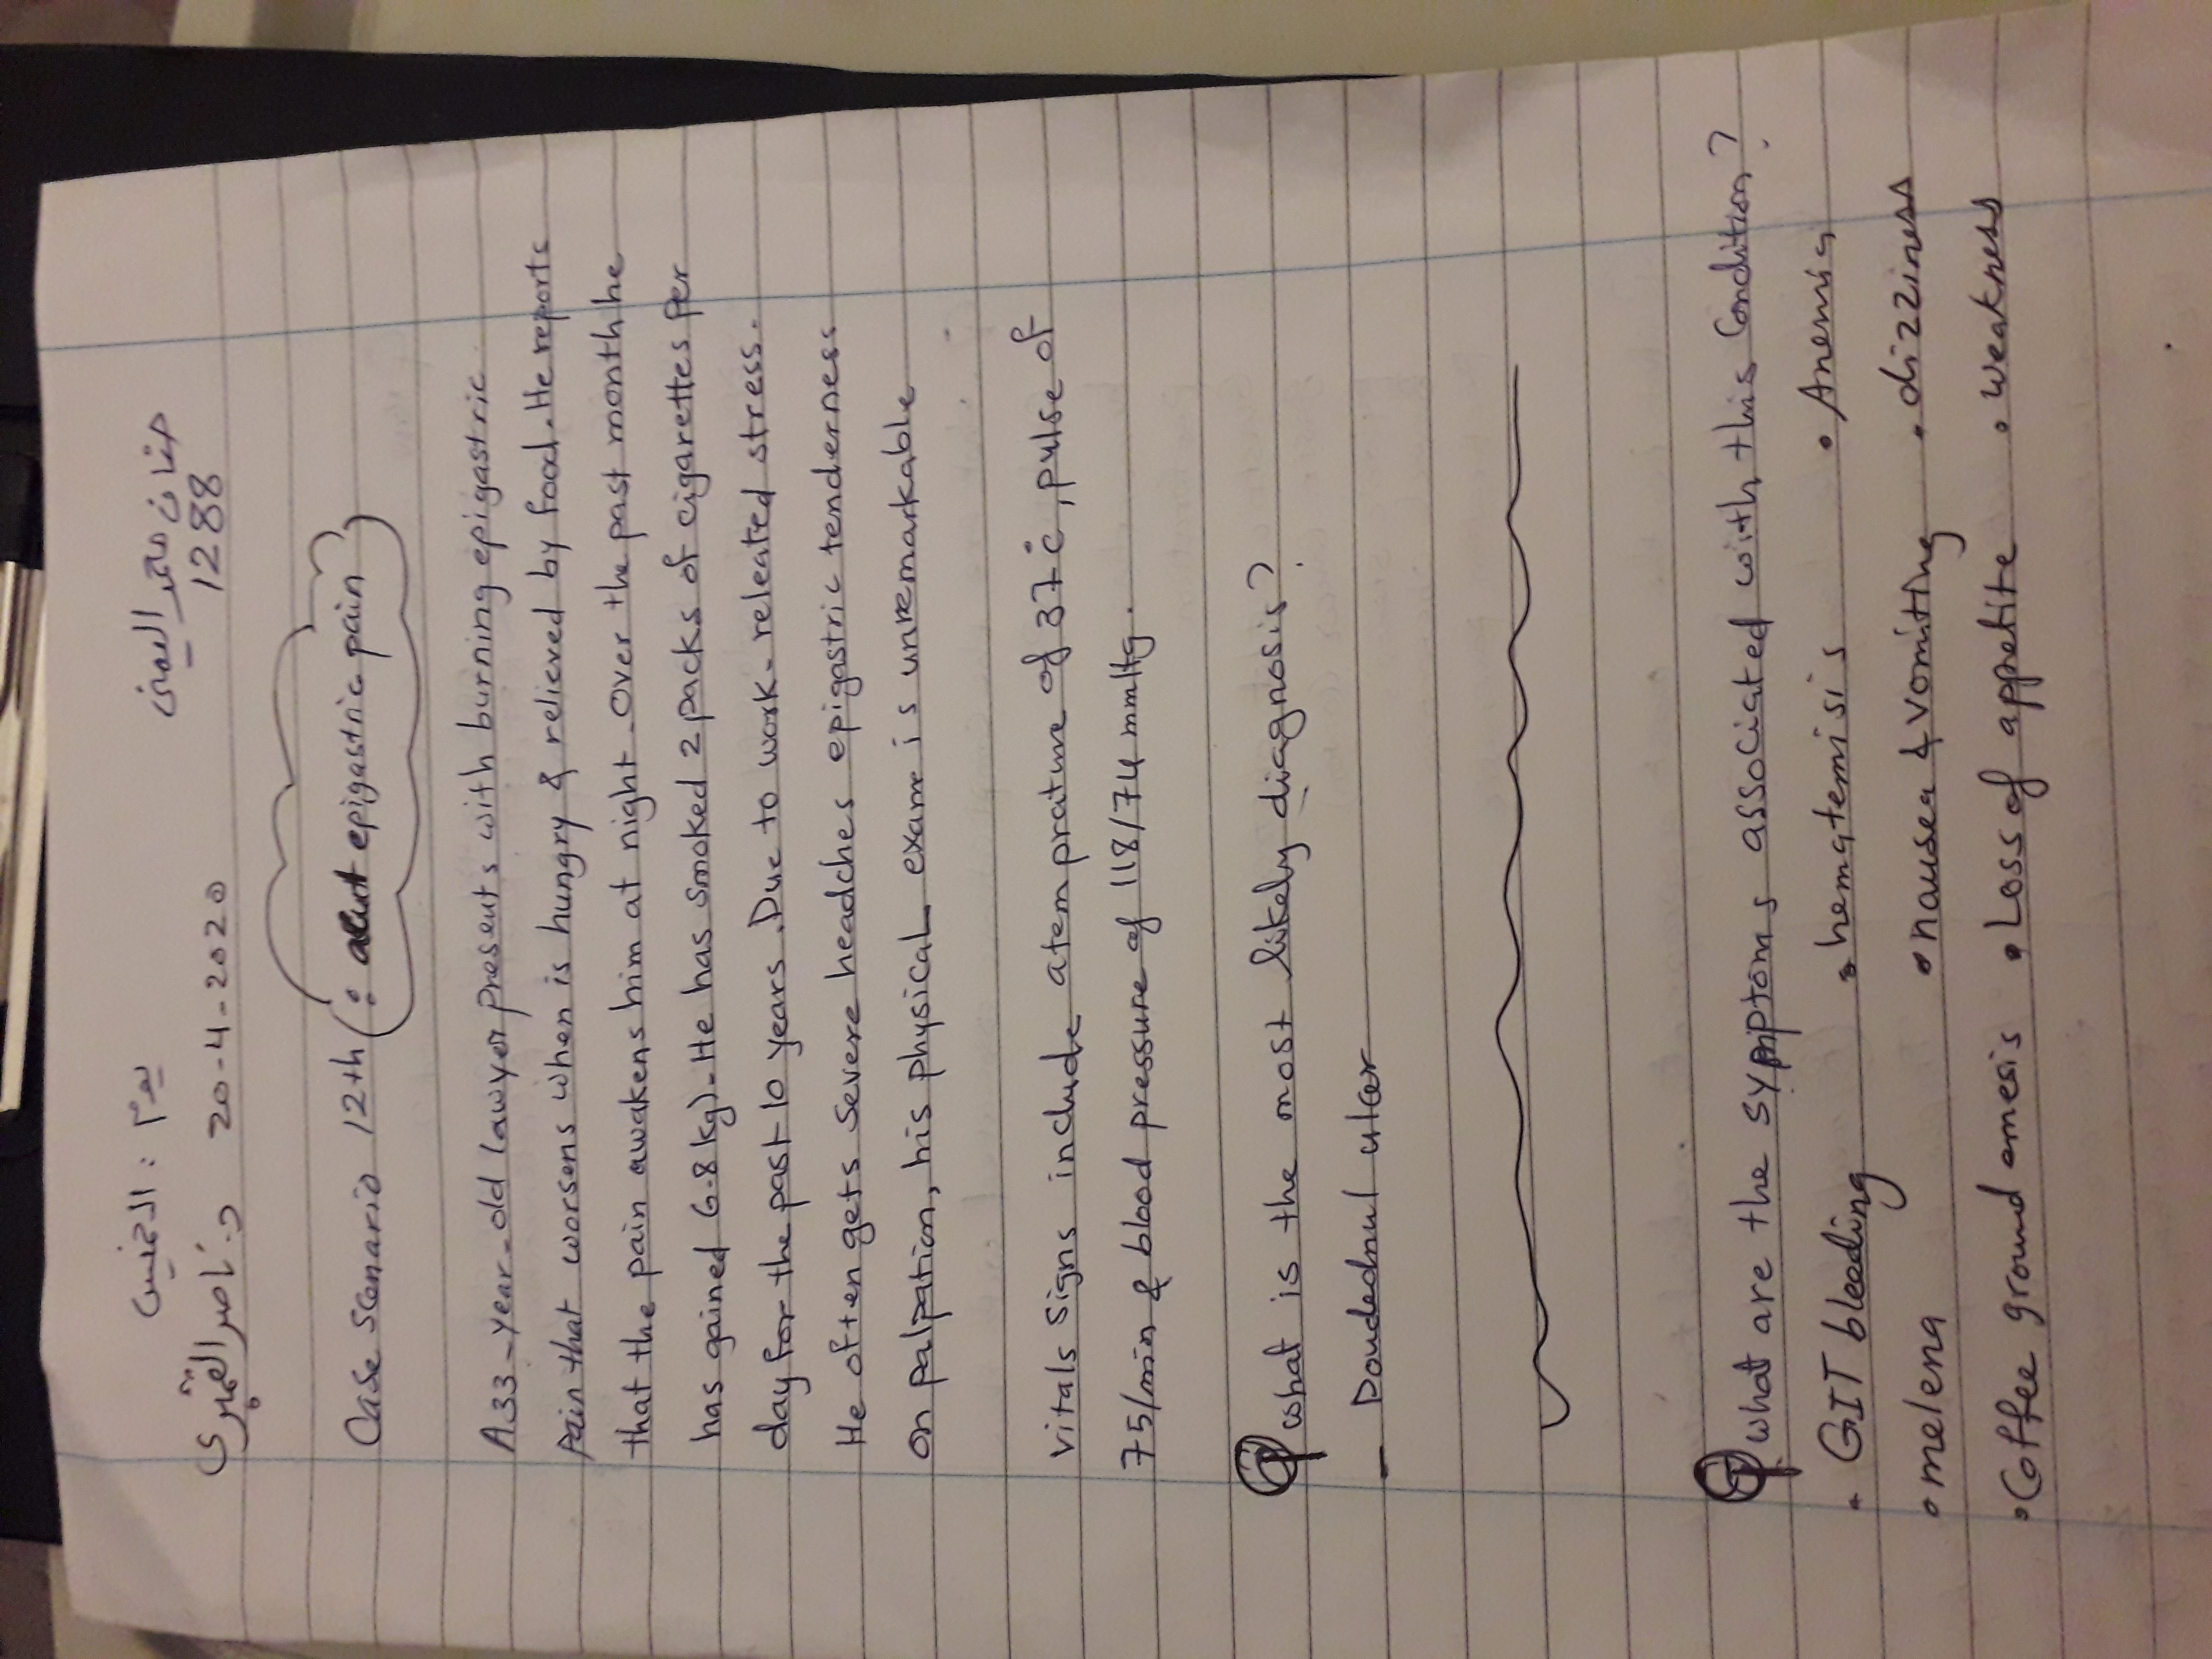 يوم : الخميس
د. ناصر القميري 20-4-2020
1288
Case Scenario 12th (: acut epigastric pain)
A 33-year-old lawyer presents with burning epigastric
pain that worsens when is hungry & relieved by food. He reports
that the pain awakens him at night. Over the past month he
has gained 6.8 kg). He has smoked 2 packs of cigarettes per
day for the past 10 years. Due to work-releated stress.
He often gets severe headches epigastric tenderness
on palpation, his physical exam is unremarkable
vitals signs include atemprature of 37°c, pulse of
75/min & blood pressure of 118/74 mmHg.
Q what is the most likely diagnosis?
- Doudednul ulcer
Q what are the symptoms associated with this Condition?
• GIT bleeding • hematemisis • Anemia
• melena • nausea & vomitting • dizziness
• Coffee ground emesis • Loss of appetite • weakness